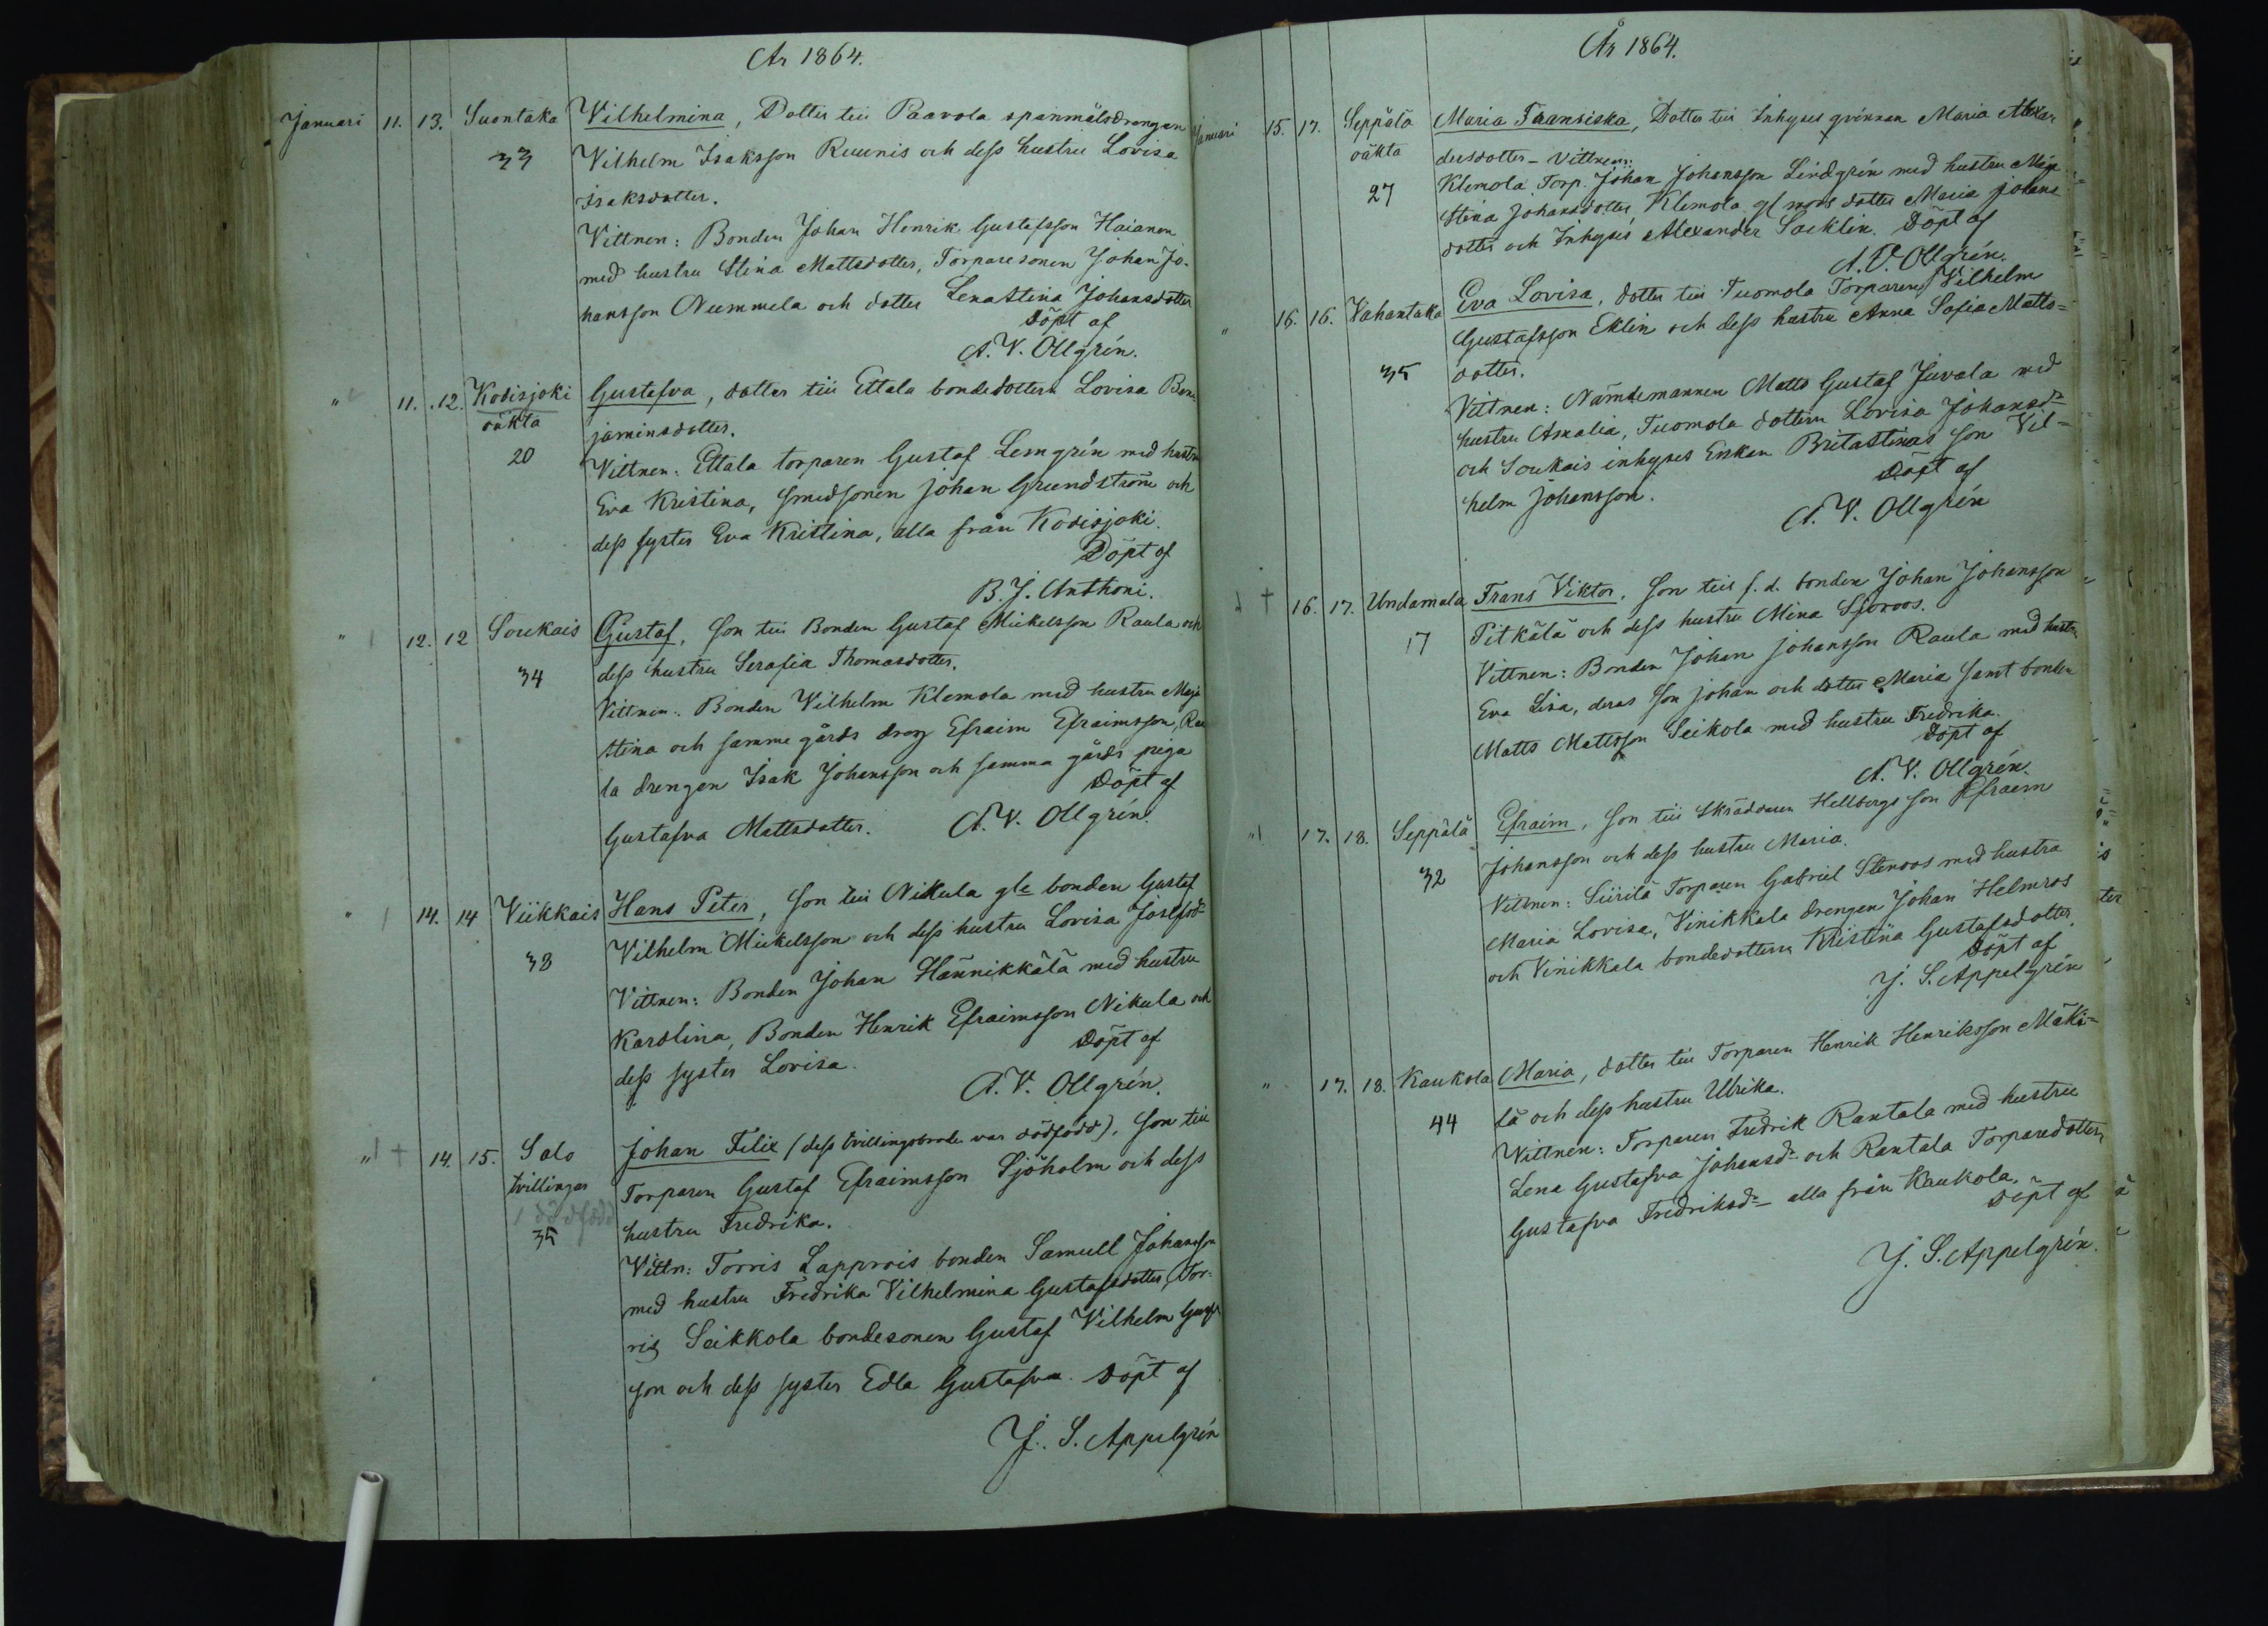 År 1864.
Januari 11. 13. Suontaka Vilhelmina, Dotter till Paavola spanmålsdrängen
33 Vilhelm Isaksson Ruunis och dess hustru Lovisa
Isaksdotter.
Vittnen: Bonden Johan Henrik Gustafsson Haianen
med hustru Stina Mattsdotter, Torparesonen Johan Jo-
hansson Nummela och dotter Lena Stina Johansdotter
Döpt af
A. V. Ollgrén.
" 11. 12. Kodisjoki Gustafva, dotter till Ettala bondedottern Lovisa Ben-
oäkta jaminsdotter.
20 Vittnen: Ettala torparen Gustaf Lemgrén med hustru
Eva Kristina, smedsonen Johan Grundström och
dess syster Eva Kristina, alla från Kodisjoki.
Döpt af
B. J. Anthoni.
" 12. 12 Soukais Gustaf, son till Bonden Gustaf Mickelsson Raula och
34 dess hustru Serafia Thomasdotter.
Vittnen: Bonden Vilhelm Klemola med hustru Maja
Stina och samme gårds dräng Efraim Efraimsson, Rau
la drengen Isak Johansson och samma gårds piga
Döpt af
Gustafva Mattsdotter. A. V. Ollgrén.
" 14. 14 Viikkais Hans Peter, son till Nikula gle bonden Gustaf
38 Vilhelm Mickelsson och dess hustru Lovisa Josefsdr
Vittnen: Bonden Johan Hännikkälä med hustru
Karolina, Bonden Henrik Efraimsson Nikula och
dess syster Lovisa. Döpt af
A. V. Ollgrén.
" † 14. 15. Salo Johan Felix (dess tvillingsbroder var dödfödd), son till
tvillingar Torparen Gustaf Efraimsson Sjöholm och dess
1 dödfödd
35 hustru Fredrika.
Vittn: Torris Lapprois bonden Samuell Johansson
med hustru Fredrika Vilhelmina Gustafsdotter, Tor-
ris Seikkola bondesonen Gustaf Vilhelm Gustafs
son och dess syster Edla Gustafva. Döpt af
J. S. Appelgrén
År 1864.
Januari 15. 17. Seppälä Maria Fransiska, Dotter till Inhyses qvinnan Maria Alexan
oäkta dersdotter - Vittnen:
27 Klemola Torp. Johan Johansson Lindgrén med hustru Maja
Stina Johansdotter, Klemola gl mors dotter Maria Johans
dotter och Inhyses Alexander Säcklin. Döpt af
A. V. Ollgrén.
" 16. 16. Vahantaka Eva Lovisa, dotter till Tuomola Torparen Vilhelm
Gustafsson Eklin och dess hustru Anna Sofia Matts-
35 dotter.
Vittnen: Nämdemannen Matts Gustaf Juvala med
hustru Amalia, Tuomola dottern Lovisa Johansdr
och Soukais inhyses Enkan Brita Stinas son Vil-
helm Johansson. Döpt af
A. V. Ollgrén
† 16. 17. Undamala Frans Viktor, son till f. d. bonden Johan Johansson
17 Pitkälä och dess hustru Mina Sjöroos.
Vittnen: Bonden Johan Johansson Raula med hustru
Eva Lisa, deras son Johan och dotter Maria samt bonden
Matts Mattsson Seikola med hustru Fredrika.
Döpt af
A. V. Ollgrén.
" 17. 18. Seppälä Efraim, son till Skräddaren Hellbergs son Efraim
32 Johansson och dess hustru Maria.
Vittnen: Siirilä Torparen Gabriel Stenroos med hustru
Maria Lovisa, Vinikkala drengen Johan Helmros
och Vinikkala bondedottern Kristina Gustafsdotter.
Döpt af
J. S. Appelgrén
" 17. 18. Kaukola Maria, dotter till Torparen Henrik Henriksson Mäki-
44 lä och dess hustru Ulrika.
Vittnen: Torparen Fredrik Rantala med hustru
Lena Gustafva Johansdr och Rantala Torparedottern
Gustafva Fredriksdr - alla från Kaukola.
Döpt af
J. S. Appelgrén.